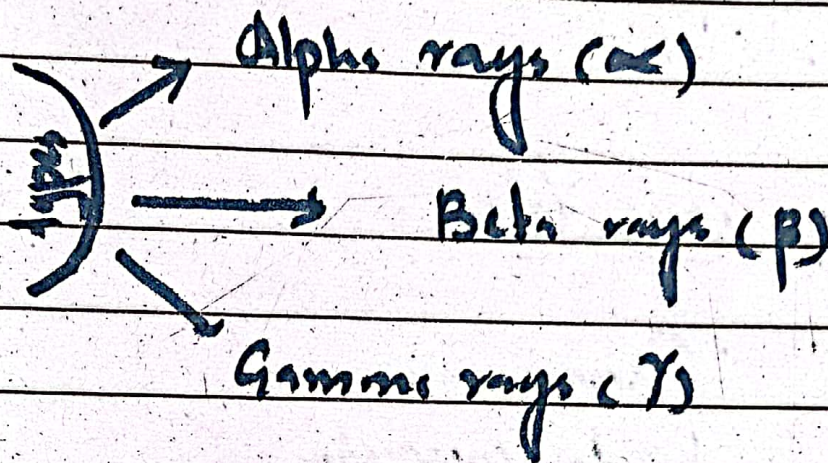 Types
Alpha rays (α)
Beta rays (β)
Gamma rays (γ)